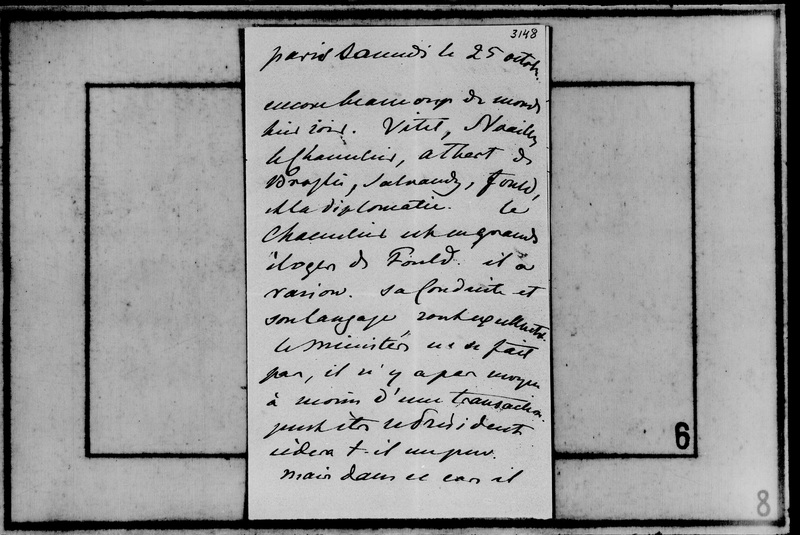 3148
paris samedi le 25 octob.
encore beaucoup de monde
hier soir. Vitet, Noailles
le Chancelier, albert de
Broglie, Salvandy, Fould,
et la diplomatie. le
Chancelier est en grands
éloges de Fould. il a
raison. sa conduite et
son langage sont excellents.
le ministère ne se fait
pas, il n'y a pas moyen
à moins d'une transaction.
peut être le Président
cèdera t-il un peu.
mais dans ce cas il
6
8